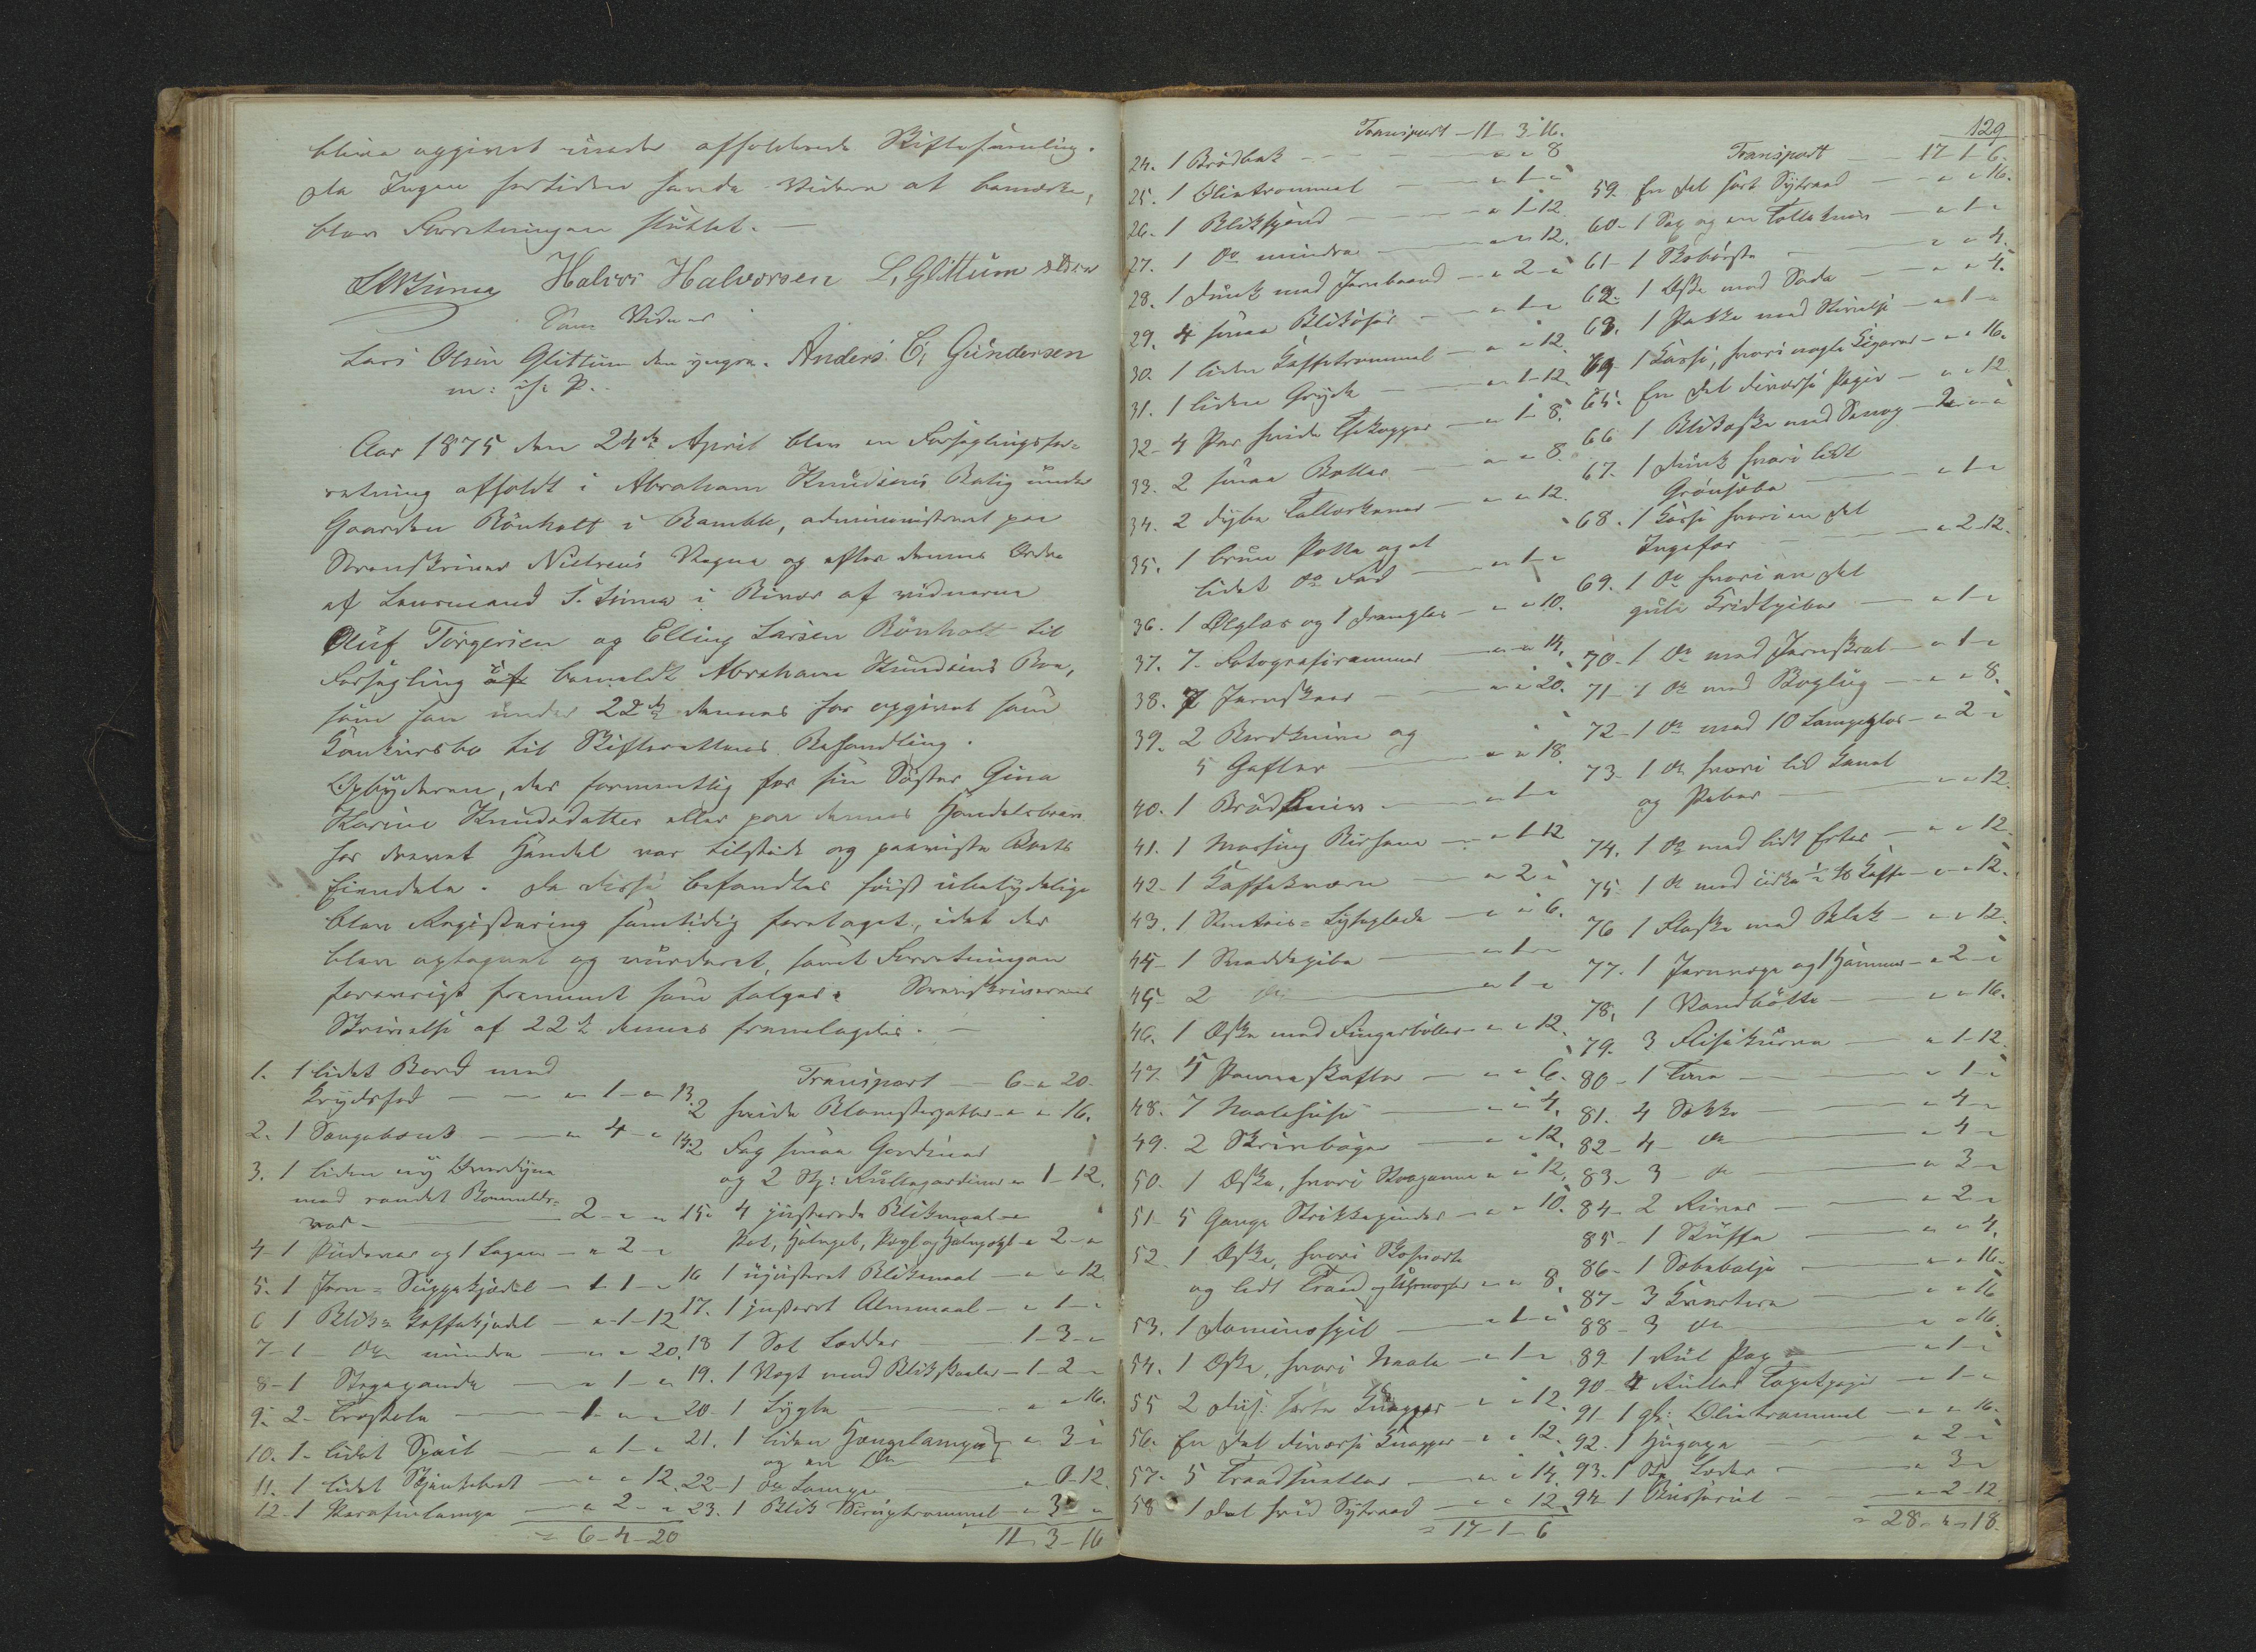 blive opgivet under afholdende Skiftesamling.
Da Ingen fortiden havde videre at bemærke,
blev Forretningen sluttet. —
Halvor Halvorsen L. Glittum ældre
Som Vidner
Lars Olsen Glittum den yngre. Anders E. Gundersen
m: if: P.
Aar 1875 den 24de April blev en Forseglingsfor-
retning afholdt i Abraham Knudsens Bolig under
Gaarden Rönholt i Bamble, administreret paa
Sorenskriver Nielsens Vegne og efter dennes Ordre
af Lensmand S. Linna i Vidner af vidnerne
Oluf Torgersen og Elling Larsen Rönholt til
Forsegling af bemeldte Abraham Knudsens Boe,
som han under 22de dennes har opgivet som
Konkursbo til Skifterettens Behandling.
Opbyderen, der formentlig for sin Søster Gina
Karine Knudsdatter eller paa dennes Handelsbrev
har drevet Handel var tilstede og paaviste Boets
Eiendele. Da disse befandtes høist ubetydelige
blev Registrering samtidig foretaget, idet der
blev optegnet og vurderet, samt Forretningen
forøvrigt fremmet som følger. Sorenskriverens
Skrivelse af 22de dennes fremlagdes. —
1. 1 lidet Bord med
Krydsfod — „ 1 „
2. 1 Sengebænk — „ 4 „
3. 1 liden ny Overdyne
med randet Bommulds-
vaar — 2 „ „
4. 1 Pudevar og 1 Lagen — „ 2 „
5. 1 Jern-Suppekjedel — „ 1 „
6 1 Blik-Kaffekjedel — „ 1 12
7 1 do mindre — „ „ 20.
8 1 Stegepande — „ 1 „
9. 2 Træstole — 1 „ „
10. 1 lidet Speil — „ 1 „
11. 1 lidet Skjænkebret — „ „ 12
12 1 Parafinlampe — „ 2 „
= 6-4-20
Transport — 6 „ 20.
13. 2 hvide Blomsterpotter „ „ 16.
14. 2 Fag smaa Gardiner
og 2 St: Rullegardiner „ 1 12.
15. 4 justerede Blikmaal
Pot, Halvpot, Pægl og Halvpægl „ 2 „
16 1 ujusteret Blikmaal — „ „ 12
17. 1 justeret Alenmaal — „ 1 „
18 1 Sot Lodder — 1 3 „
19. 1 Vægt med Blikskaaler — 1 2 „
20. 1 Lygte — „ „ 16.
21. 1 liden Hængelampe
og en do „ 3 „
22 1 do Lampe
23. 1 Blik Siruptrommel — „ 3 „
11 3 16
Transport 11 3 16.
24. 1 Brödbak — „ „ 8
25. 1 Olietrommel — „ 1 „
26. 1 Blikspand — „ 1 12
27. 1 do mindre — „ „ 12.
28. 1 Dunk med Jernbaand — „ 2 „
29. 4 smaa — „ 1 „
30. 1 liden Kaffetrommel — „ „ 12.
31. 1 liden Gryde — „ 1 12.
32 4 Par hvide Thekopper — „ 1 8.
33. 2 smaa Boller — „ „ 8.
34. 2 dybe Tallerkener — „ „ 12.
35. 1 brun Potte og et
lidet do Fad — „ 1 „
36. 1 Ølglas og 1 Dramglas — „ „ 10.
37. 7 Fotografirammer — „ „ 14.
38. 7 Jernskeer — „ „ 20.
39. 2 Bordknive og
5 Gafler — „ „ 18.
40. 1 Brödkniv — „ 1 „
41. 1 Messing — „ 1 12
42. 1 Kaffekværn — „ 2 „
43. 1 Lyseplade — „ „ 6.
44 1 Snaddepibe — „ 1 „
45 2 do — „ 1 „
46. 1 Æske med Fingerböller „ „ 12.
47. 5 Penneskafter — „ „ 6.
48. 7 Naalehuse — „ „ 4.
49. 2 Skrivböger — „ „ 12.
50. 1 Æske, hvori „ „ 12.
51 5 Gange Strikkepinder — „ „ 10.
52 1 Æske, hvori Skosværte
og lidt Traad og Uhrnøgler „ „ 8.
53. 1 Dominospil — „ 1 „
54. 1 Æske, hvori Naale — „ 1 „
55 2 Dus: sorte Knapper — „ „ 12.
56. En Del diverse Knapper — „ „ 12.
57. 5 Traadsneller — „ „ 14.
58 1 Del hvid Sytraad — „ „ 12
= 17-1-6
129
Transport — 17 1 6.
59. En Del sort Sytraad — „ „ 16.
60. 1 Sax og en Tolleknivs — „ 1 „
61 1 Skobörste — „ „ 4.
62. 1 Æske med Soda — „ „ 4.
63. 1 Pakke med Stivelse — „ 1 „
64 1 Kasse, hvori nogle Cigarer „ „ 16.
65. En Del diverse Papir — „ „ 12
66 1 Blikæske med Senep — 2 „ „
67. 1 Dunk hvori lidt
Grönsæbe — „ 1 „
68. 1 Kasse hvori en Del
Ingefær — „ 2 12.
69. 1 do hvori en Del
gule Kridtpiber — „ 1 „
70 1 do med Jernskrab — „ 1 „
71 1 do med — „ „ 8.
72 1 do med 10 Lampeglas „ 2 „
73 1 do hvori lidt Kanel
og Peber — „ „ 12.
74. 1 do med lidt Erter — „ „ 12.
75 1 do med cirka ½ ℔ Kaffe „ „ 12.
76 1 Flaske med Blæk — „ „ 12.
77. 1 Jernvægt og 1 Hammer „ 2 „
78. 1 Vandbötte — „ „ 16.
79. 3 Flisekurve — „ 1 12
80 1 Tine — „ 1 „
81. 4 Sække — „ 4 „
82 4 do — „ 4 „
83 3 do — „ 3 „
84 2 River — „ 2 „
85 1 Skuffe — „ „ 4.
86 1 Sæbebalje — „ „ 16.
87 3 — „ „ 16
88 3 do — „ „ 16.
89 1 Rul Pap — „ 1 „
90 4 Ruller Tapetpapir — „ 1 „
91 1 gl: Olietrommel — „ „ 16.
92. 1 — „ 2 „
93. 1 do — „ 3 „
94 1 — „ 2 12
= 28-4-18